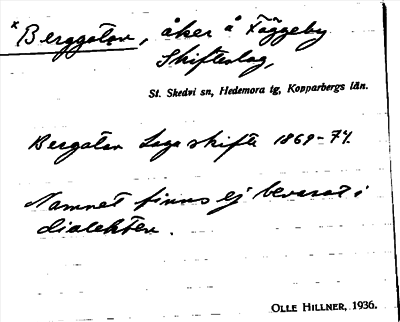 *Berggatan, åker å Fäggeby
Skifteslag,
St. Skedvi sn, Hedemora tg, Kopparbergs län.
Bergatan Laga skifte 1869-74.
Namnet finns ej bevarat i
dialekten.
OLLE HILLNER, 1936.